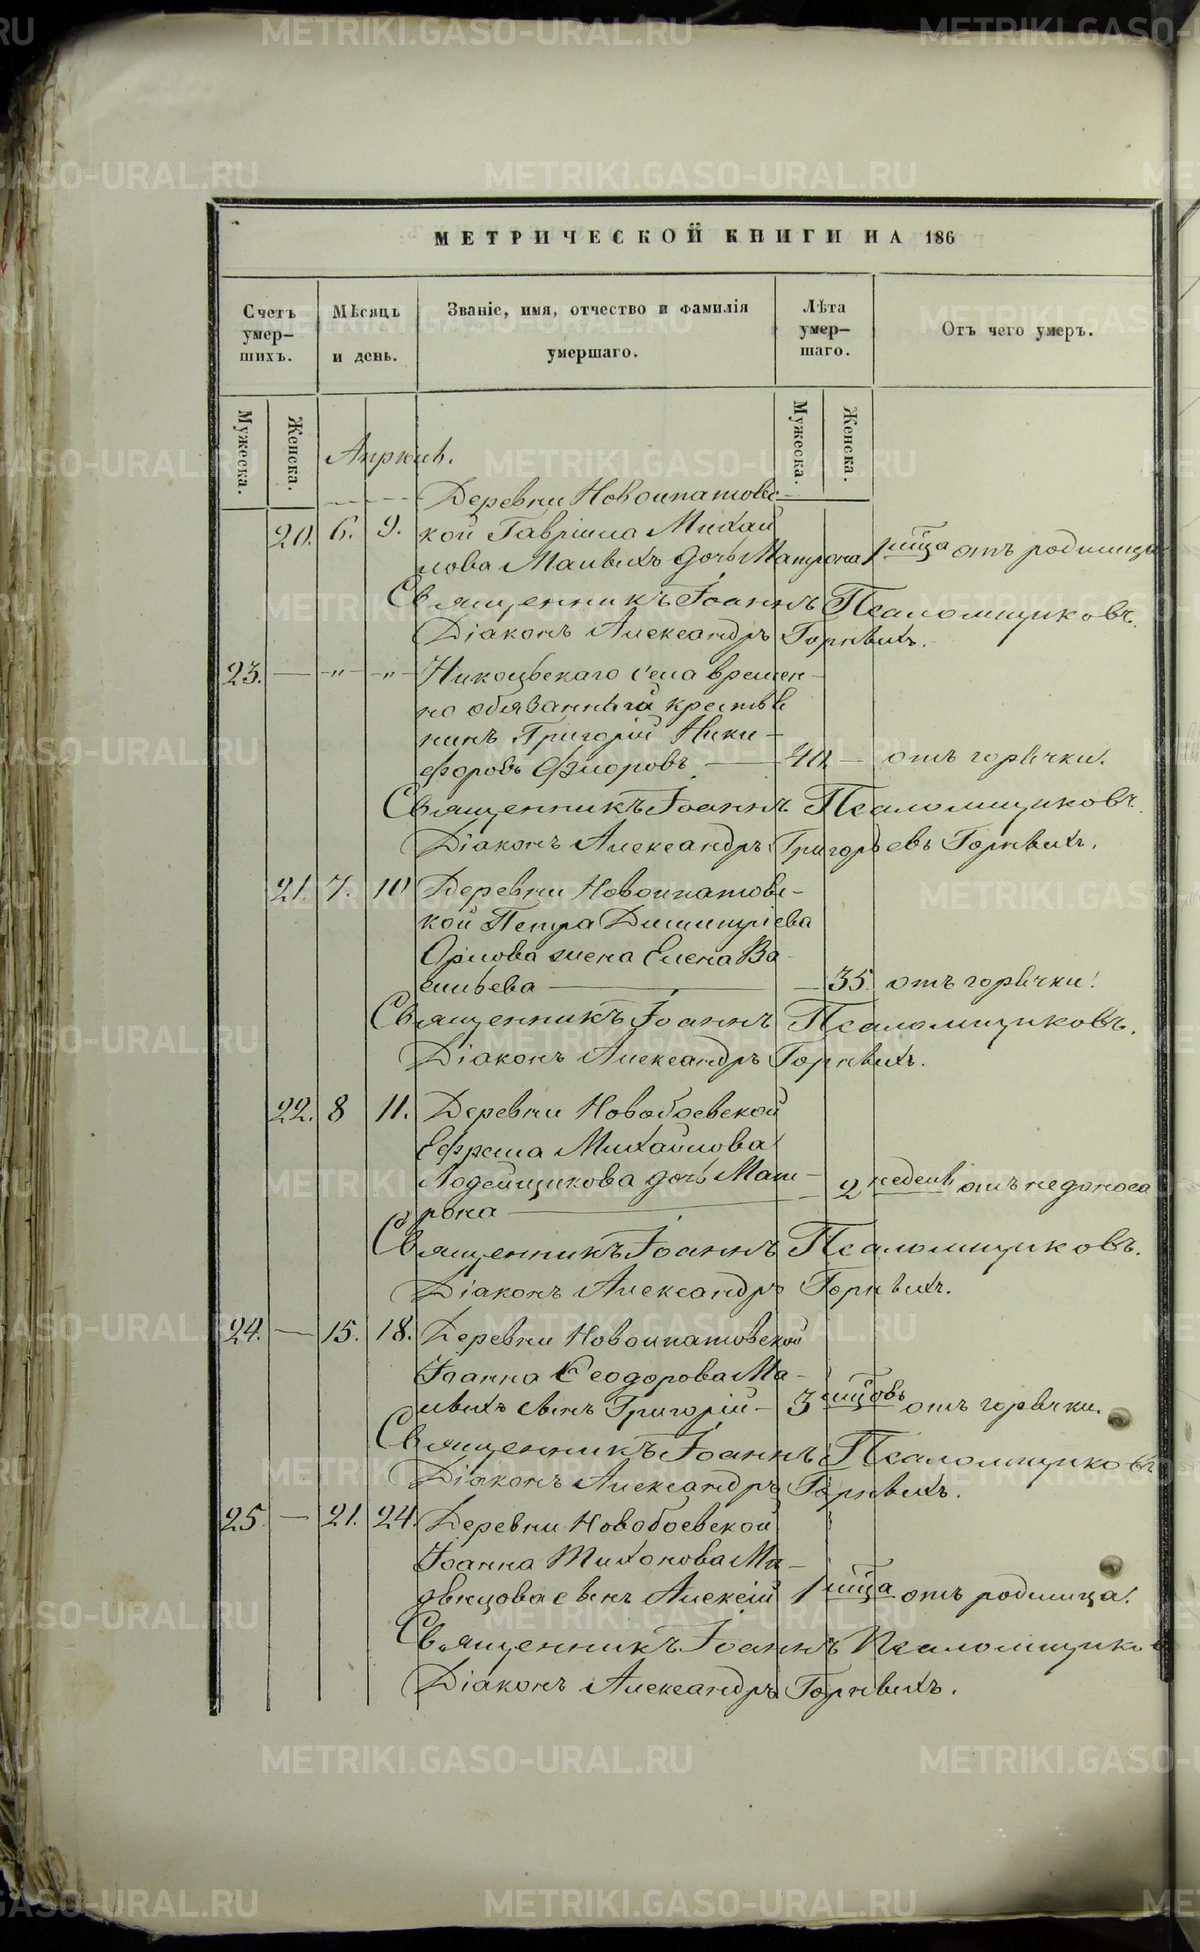 МЕТРИЧЕСКОЙ КНИГИ НА 186
Счетъ умер-шихъ.
Мѣсяцъ и день.
Званіе, имя, отчество и фамилія умершаго.
Лѣта умер-шаго.
Отъ чего умеръ.
Мужеска. Женска.
Мужеска. Женска.
Апрѣль.
Деревни Новоипатовс-
20. 6. 9. кой Гавріила Михаи
лова Малыхъ дочь Матрона 1 мѣсяца отъ родимца
Священникъ Іоаннъ Псаломщиковъ.
Діаконъ Александръ Горныхъ.
23. — „ „ Никольскаго села времен-
но обязанный крестья
нинъ Григорій Ники-
форовъ Флоровъ — 40 — отъ горячки.
Священникъ Іоаннъ Псаломщиковъ.
Діаконъ Александръ Григорьевъ Горныхъ.
21. 7. 10 Деревни Новоипатовс-
кой Петра Димитріева
Орлова жена Елена Ва-
сильева — 35. отъ горячки.
Священникъ Іоаннъ Псаломщиковъ.
Діаконъ Александръ Горныхъ.
22. 8 11. Деревни Новобоевской
Ефрема Михайлова
Лодейщикова дочь Мат-
рона — 2 недѣли отъ недоноса
Священникъ Іоаннъ Псаломщиковъ.
Діаконъ Александръ Горныхъ.
24. — 15. 18. Деревни Новоипатовской
Іоанна Ѳеодорова Ма-
лыхъ сынъ Григорій — 3 мѣсяцовъ отъ горячки.
Священникъ Іоаннъ Псаломщиковъ
Діаконъ Александръ Горныхъ.
25. — 21. 24. Деревни Новобоевской
Іоанна Тихонова
сынъ Алексій 1 мѣсяца отъ родимца.
Священникъ Іоаннъ Псаломщиков
Діаконъ Александръ Горныхъ.
METRIKI.GASO-URAL.RU